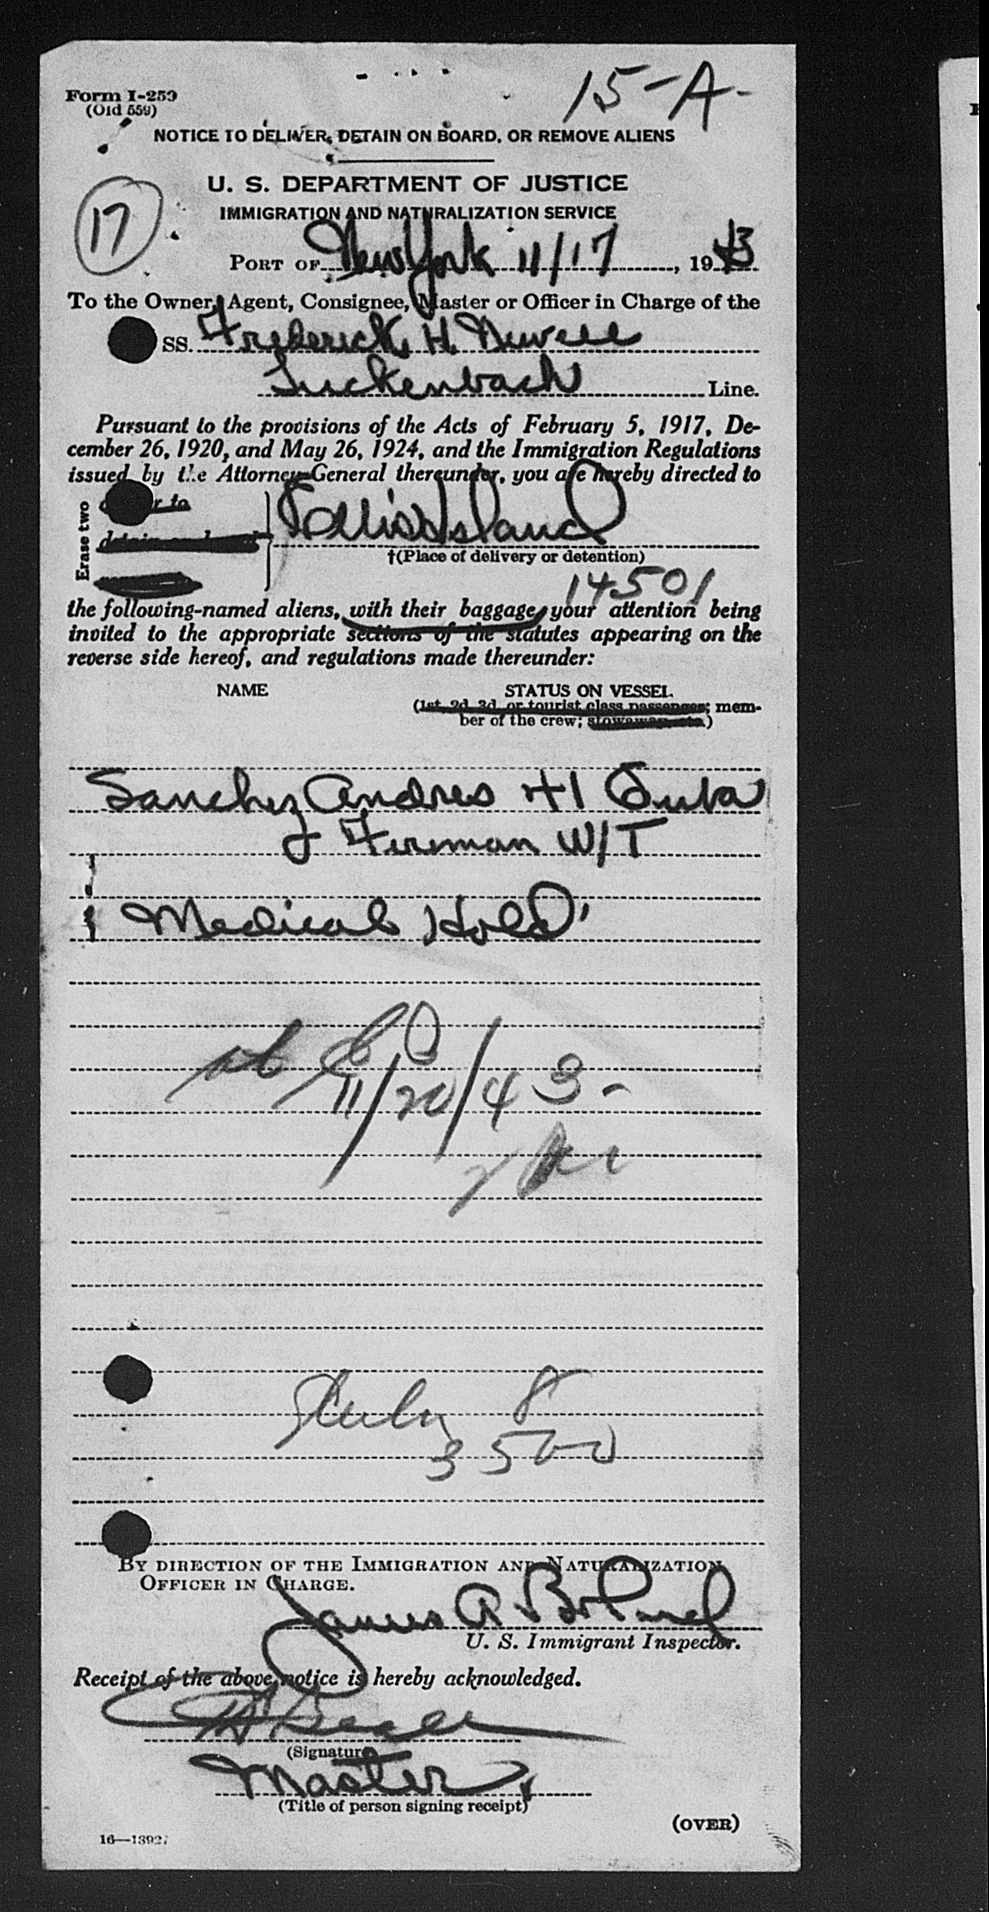 15-A-
Form I-259
(Old 559)
NOTICE TO DELIVER, DETAIN ON BOARD, OR REMOVE ALIENS
U. S. DEPARTMENT OF JUSTICE
17
IMMIGRATION AND NATURALIZATION SERVICE
PORT OF New York 11/17, 1943
To the Owner, Agent, Consignee, Master or Officer in Charge of the
SS. Frederick H. Newell
Luckenbach Line.
Pursuant to the provisions of the Acts of February 5, 1917, De-
cember 26, 1920, and May 26, 1924, and the Immigration Regulations
issued by the Attorney General thereunder, you are hereby directed to
Erase two
Ellis Island
†(Place of delivery or detention)
14501
the following-named aliens, with their baggage, your attention being
invited to the appropriate sections of the statutes appearing on the
reverse side hereof, and regulations made thereunder:
NAME STATUS ON VESSEL
(1st, 2d, 3d, or tourist class passenger; mem-
ber of the crew; stowaway, etc.)
Sanchez Andres 41 Cuba
Fireman W/T
Medical Hold
11/20/43-
8
3500
BY DIRECTION OF THE IMMIGRATION AND NATURALIZATION
OFFICER IN CHARGE.
James A
U. S. Immigrant Inspector.
Receipt of the above notice is hereby acknowledged.
(Signature)
Master
(Title of person signing receipt)
(OVER)
16—13927